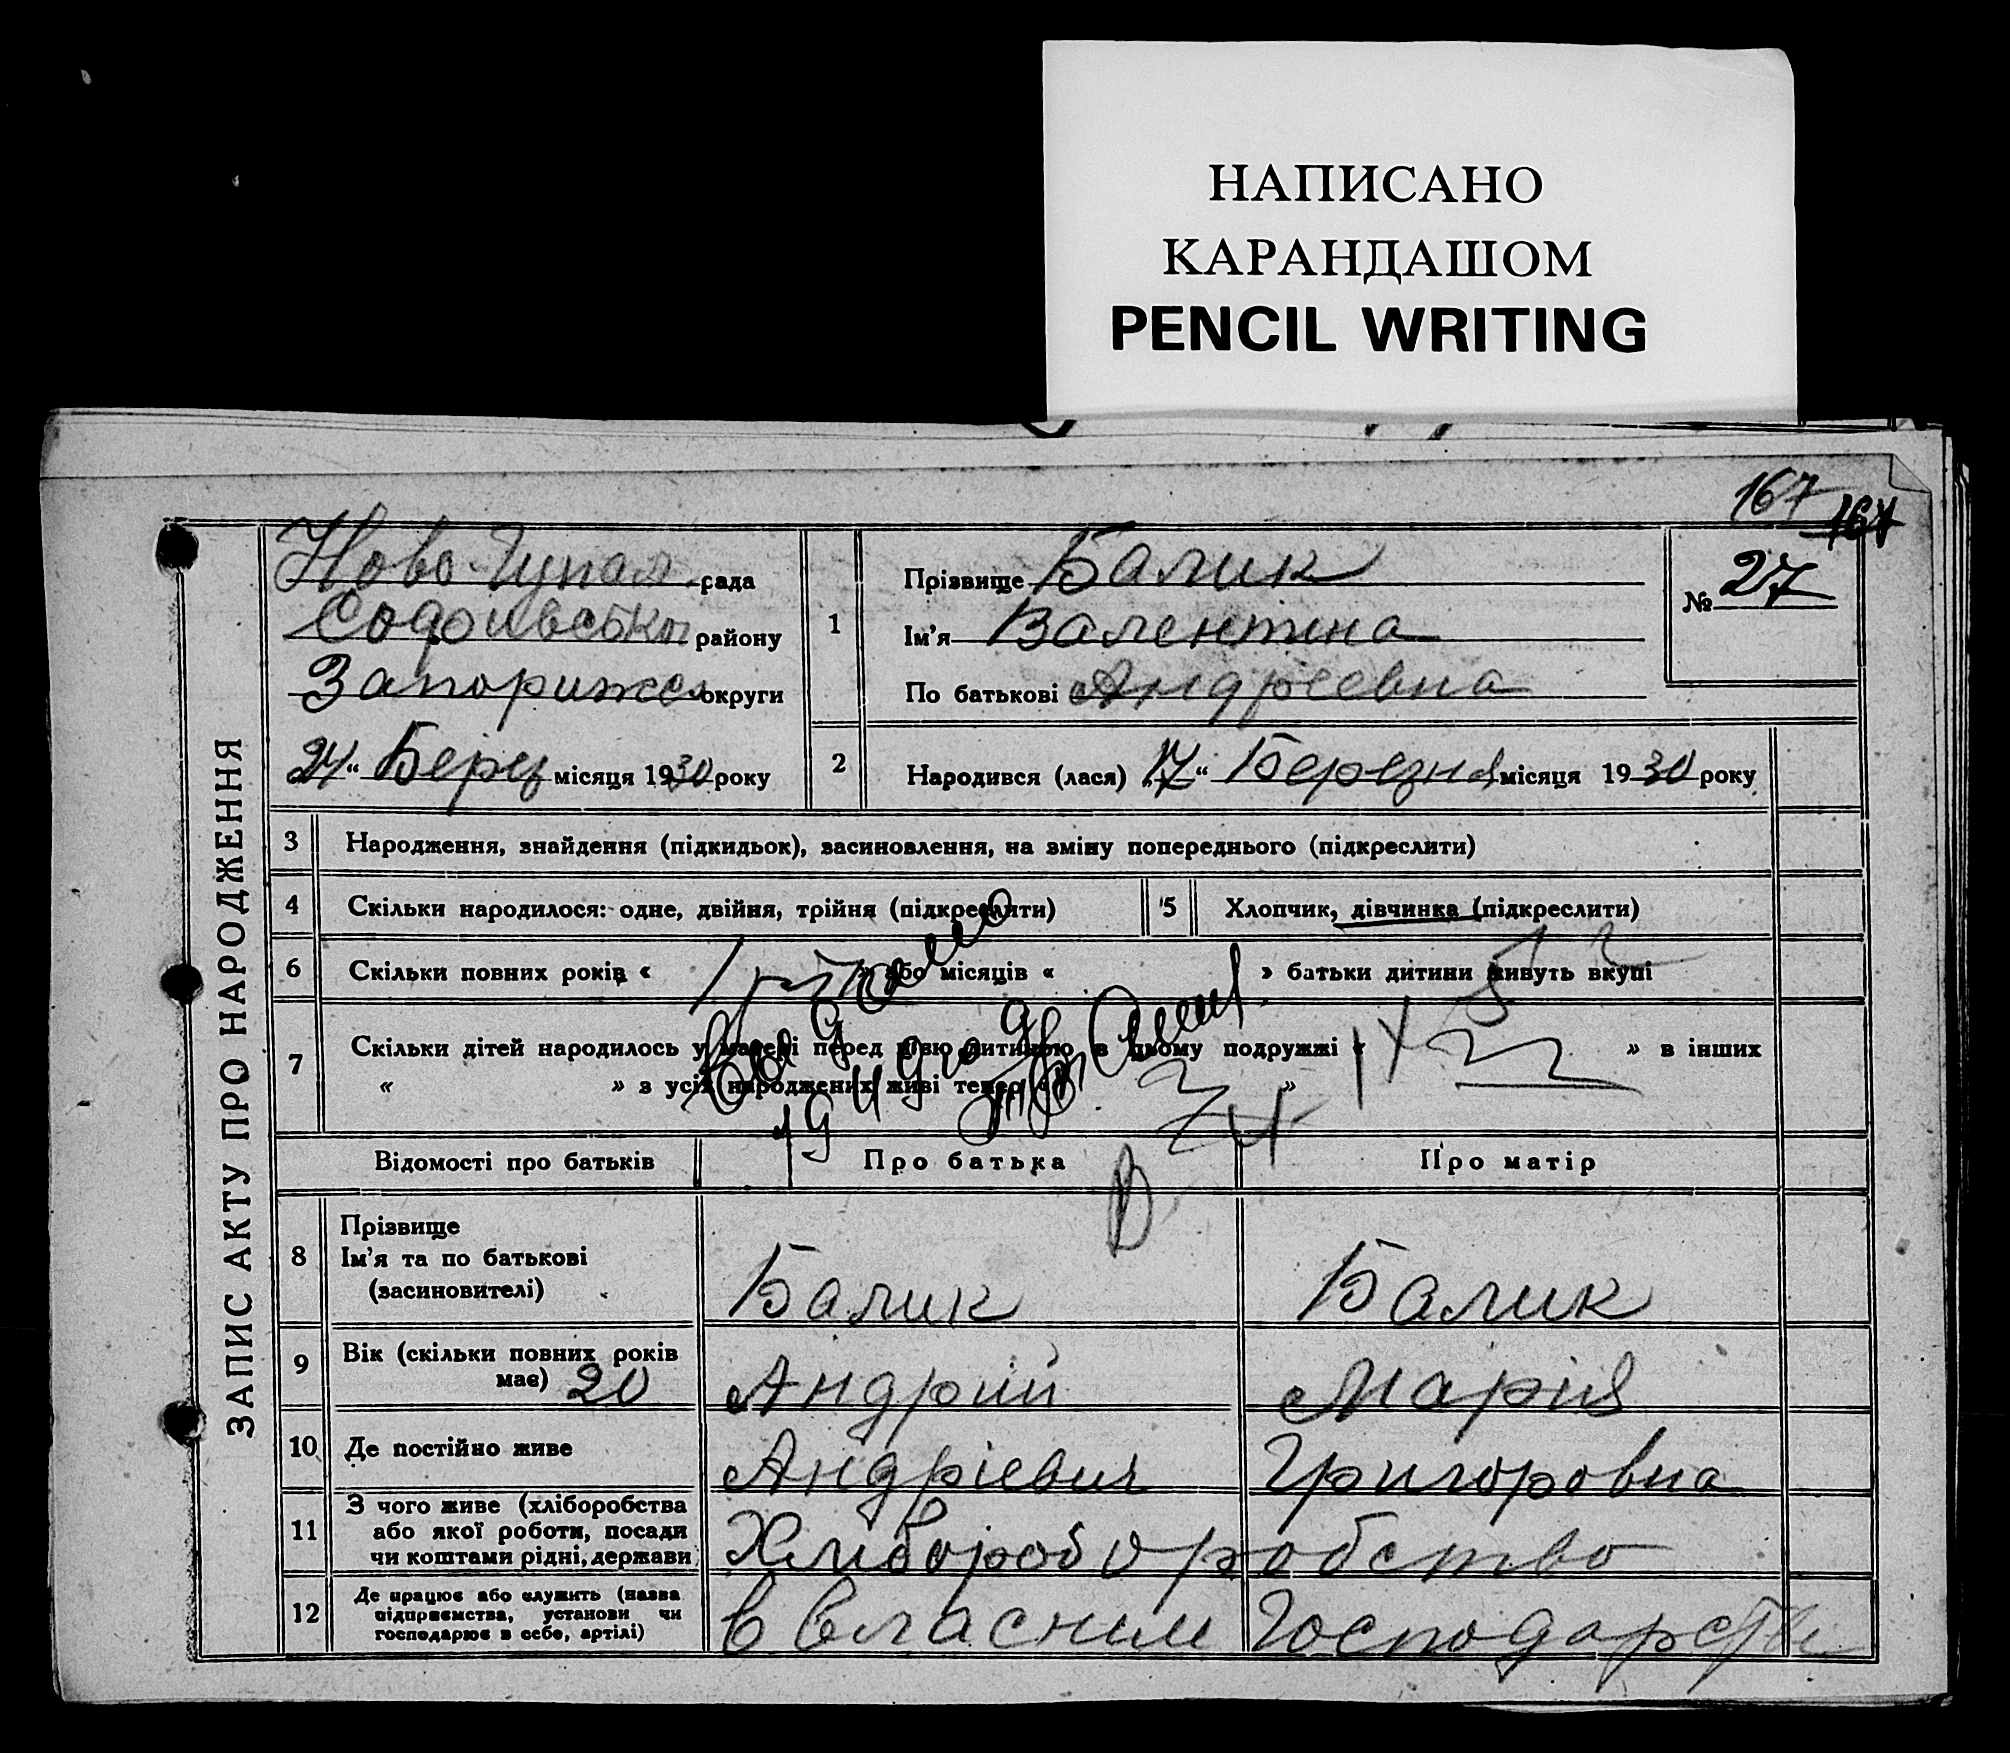 НАПИСАНО
КАРАНДАШОМ
PENCIL WRITING
167 167
ЗАПИС АКТУ ПРО НАРОДЖЕННЯ
Ново-Гупал рада
району
Запорижс округи
24 “ Берез місяця 1930 року
1
Прізвище Балик
Ім'я Валентина
По батькові Андріевна
№ 27
2 Народився (лася) 17 “ Березня місяця 1930 року
3 Народження, знайдення (підкидьок), засиновлення, на зміну попереднього (підкреслити)
4 Скільки народилося: одне, двійня, трійня (підкреслити)
5 Хлопчик, дівчинка (підкреслити)
6 Скільки повних років « 1 рік » або місяців « » батьки дитини живуть вкупі
7 Скільки дітей народилось у матері перед цією дитиною в цьому подружжі « » в інших
« » з усіх народжених живі тепер « »
Відомості про батьків Про батька Про матір
8 Прізвище
Ім'я та по батькові
(засиновителі)
Балик Балик
9 Вік (скільки повних років
має) 20
Андрий Мария
10 Де постійно живе Андріевич Григоровна
11 З чого живе (хліборобства
або якої роботи, посади
чи коштами рідні, держави
12 Де працює або служить (назва
підприємства, установи чи
господарює в себе, артілі)
в власним Господарстви